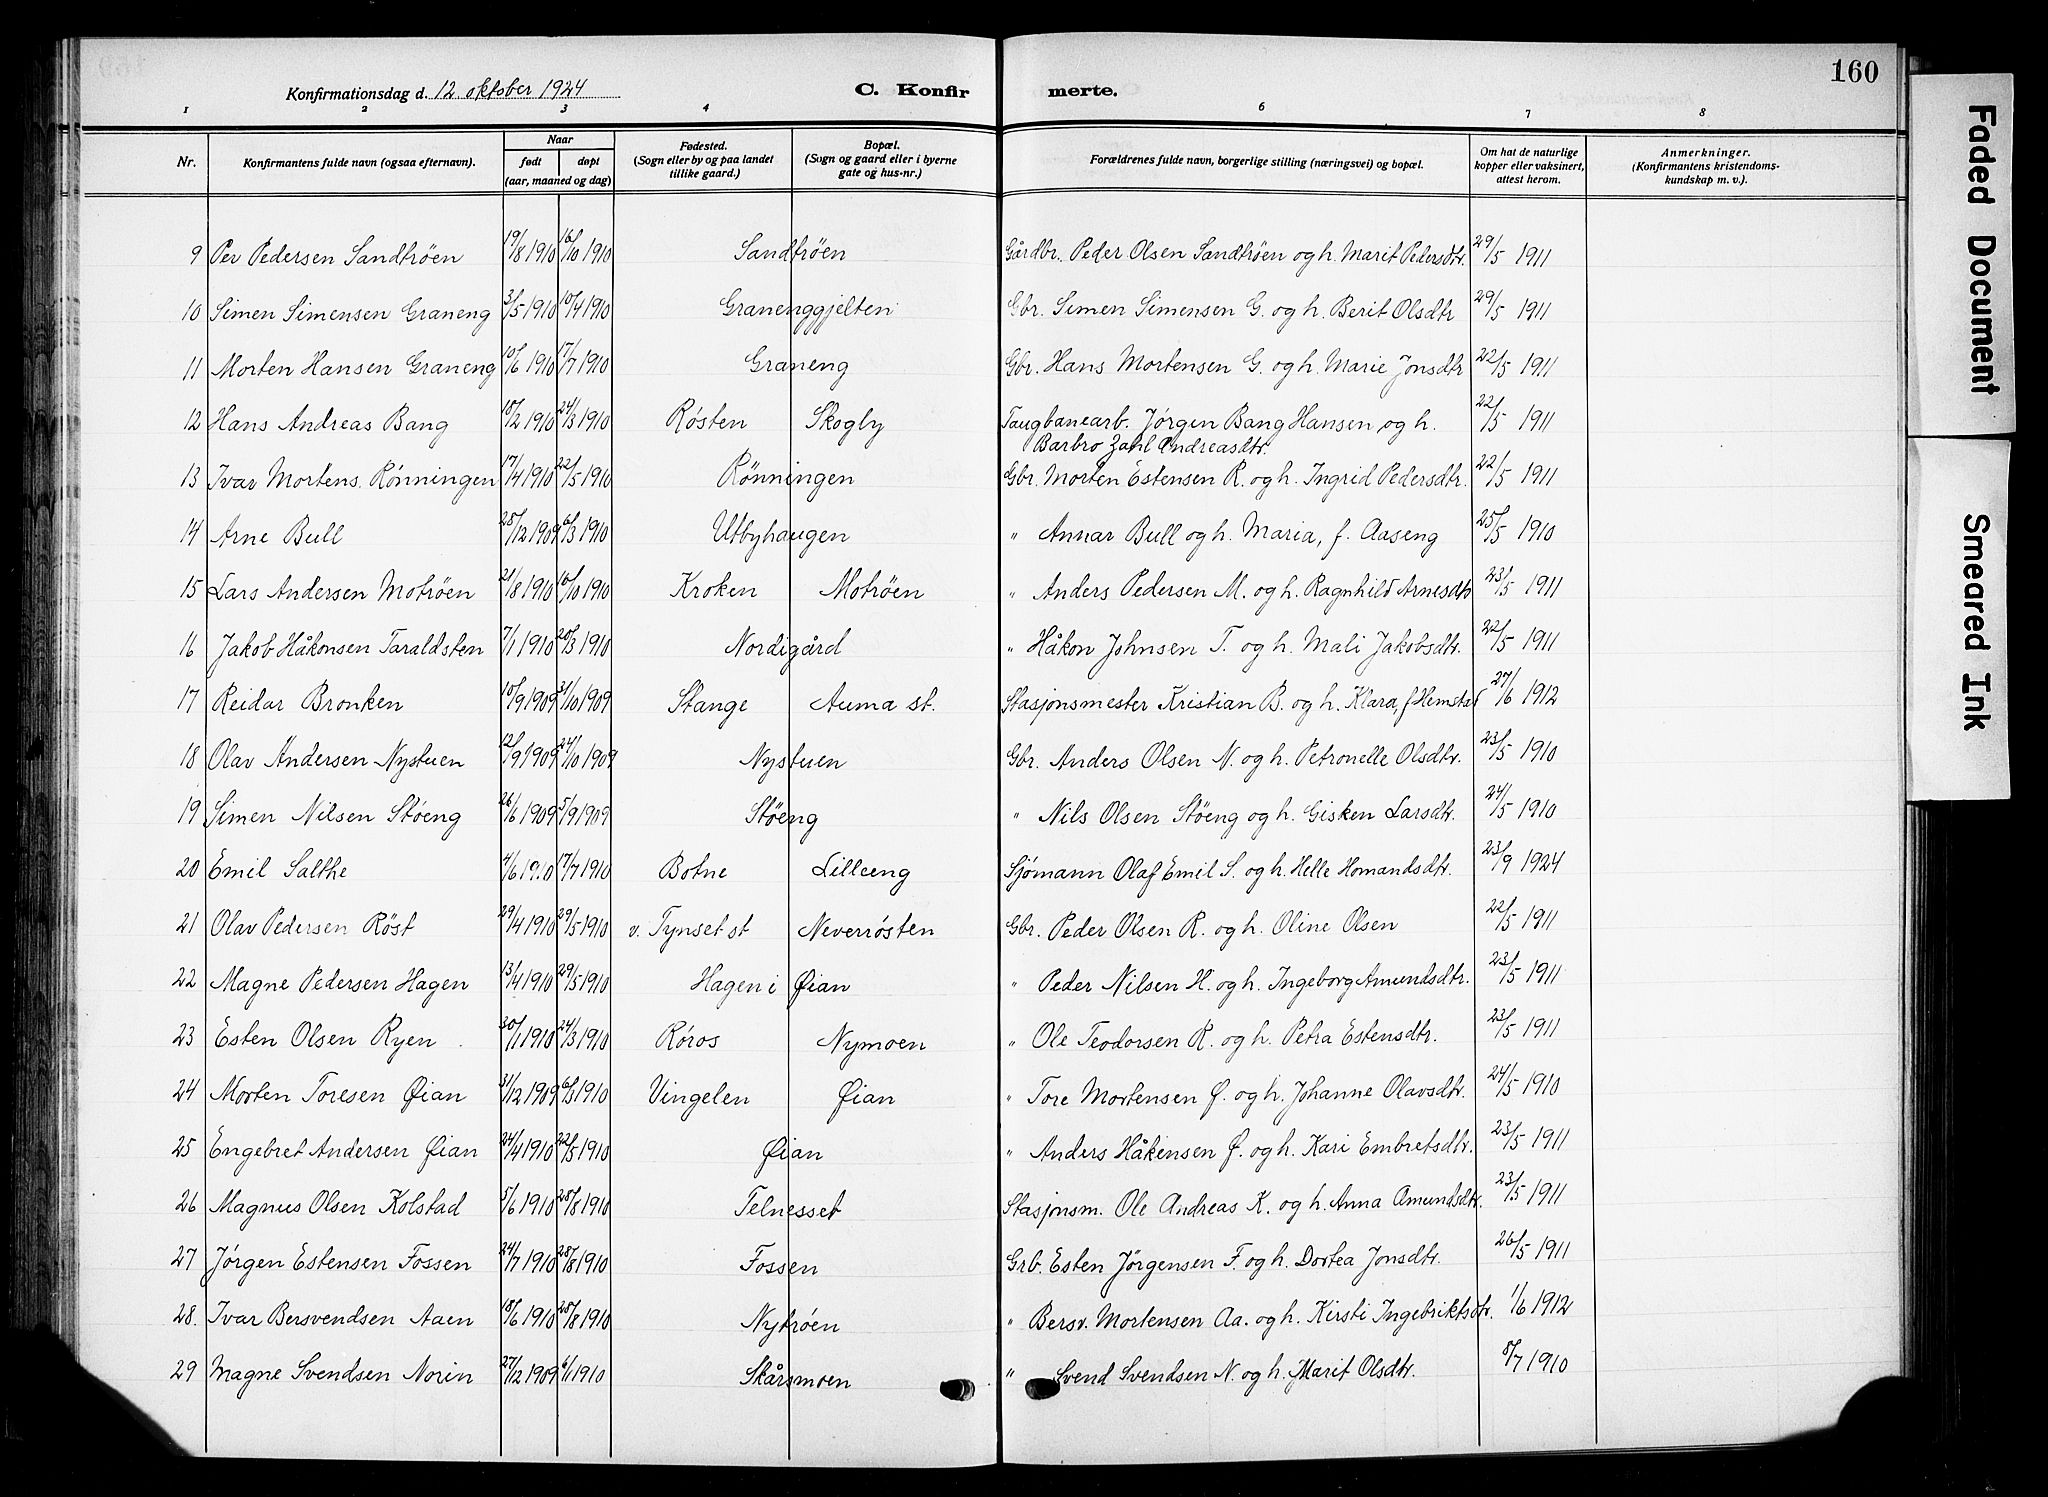 160
Konfirmationsdag d. 12. oktober 1924 C. Konfir merte.
1 2 3 4 5 6 7 8
Nr. Konfirmantens fulde navn (ogsaa efternavn). Naar født døpt (aar, maaned og dag) Fødested. (Sogn eller by og paa landet tillike gaard.) Bopæl. (Sogn og gaard eller i byerne gate og hus-nr.) Forældrenes fulde navn, borgerlige stilling (næringsvei) og bopæl. Om hat de naturlige kopper eller vaksinert, attest herom. Anmerkninger. (Konfirmantens kristendomskundskap m. v.).
9 Per Pedersen Sandtrøen 19/8 1910 16/10 1910 Sandtrøen Gårdbr. Peder Olsen Sandtrøen og h. Marit Pedersdtr. 29/5 1911
10 Simen Simensen Graneng 3/5 1910 10/4 1910 Granenggjelten Gbr. Simen Simensen G. og h. Berit Olsdtr 29/5 1911
11 Morten Hansen Graneng 10/6 1910 17/7 1910 Graneng Gbr. Hans Mortensen G. og h. Marie Jonsdtr 22/5 1911
12 Hans Andreas Bang 18/2 1910 24/3 1910 Røsten Skogby Taugbanearb. Jørgen Bang Hansen og h. 22/5 1911
Barbro Zahl Andreasdtr.
13 Ivar Mortens. Rønningen 17/4 1910 22/5 1910 Rønningen Gbr. Morten Estensen R. og h. Ingrid Pedersdtr. 22/5 1911
14 Arne Bull 28/12 1909 6/3 1910 Utbyhaugen " Annar Bull og h. Maria, f. Aaseng 25/5 1910
15 Lars Andersen Motrøen 21/8 1910 16/10 1910 Kroken Motrøen " Anders Pedersen M. og h. Ragnhild Arnesdtr 23/5 1911
16 Jakob Håkonsen Taraldsten 7/1 1910 20/3 1910 Nordigård " Håkon Johnsen T. og h. Mali Jakobsdtr. 22/5 1911
17 Reidar Bronken 10/9 1909 31/10 1909 Stange Auma st. Stasjonsmester Kristian B. og h. Klara, f Hemstad 27/6 1912
18 Olav Andersen Nystuen 12/9 1909 24/10 1909 Nystuen Gbr. Anders Olsen N. og h. Petronelle Olsdtr. 23/5 1910
19 Simen Nilsen Støeng 26/6 1909 5/9 1909 Støeng " Nils Olsen Støeng og h. Gisken Larsdtr. 24/5 1910
20 Emil Salthe 4/6 1910 17/7 1910 Botne Lilleeng Sjømann Olaf Emil S. og h. Helle Homandsdtr. 23/9 1924
21 Olav Pedersen Røst 29/4 1910 29/5 1910 v. Tynset st Neverrøsten Gbr. Peder Olsen R. og h. Oline Olsen 22/5 1911
22 Magne Pedersen Hagen 13/4 1910 29/5 1910 Hagen i Øian " Peder Nilsen H. og h. Ingeborg Amundsdtr. 23/5 1911
23 Esten Olsen Ryen 30/1 1910 24/3 1910 Røros Nymoen " Ole Teodorsen R. og h. Petra Estensdtr. 23/5 1911
24 Morten Toresen Øian 31/12 1909 6/3 1910 Vingelen Øian " Tore Mortensen Ø. og h. Johanne Olavsdtr. 24/5 1910
25 Engebret Andersen Øian 24/4 1910 22/5 1910 Øian " Anders Håkensen Ø. og h. Kari Embretsdtr. 23/5 1911
26 Magnus Olsen Kolstad 5/6 1910 28/8 1910 Telnesset Stasjonsm. Ole Andreas K. og h. Anna Amundsdtr. 23/5 1911
27 Jørgen Estensen Fossen 24/7 1910 28/8 1910 Fossen Grb. Esten Jørgensen F. og h. Dortea Jonsdtr. 26/5 1911
28. Ivar Bersvendsen Aaen 18/6 1910 28/8 1910 Nytrøen " Bersv. Mortensen Aa. og h. Kirsti Ingebriktsdtr. 1/6 1912
29 Magne Svendsen Norin 27/12 1909 6/1 1910 Skårsmoen " Svend Svendsen N. og h. Marit Olsdtr. 8/7 1910
Faded Document
Smeared Ink